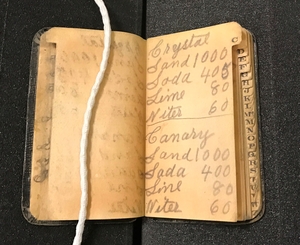 Crystal
Sand 1000
Soda 405
Lime 80
Niter 60
Canary
Sand 1000
Soda 400
Lime 80
Niter 60
C
D
E
F